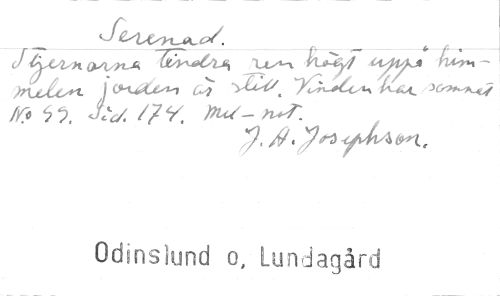 Serenad.
Stjernorna tindra ren högt uppå him-
melen jorden är still. Vinden har somnat
No 59. Sid. 174. Mel-not.
J. A. Josephson.
Odinslund o, Lundagård